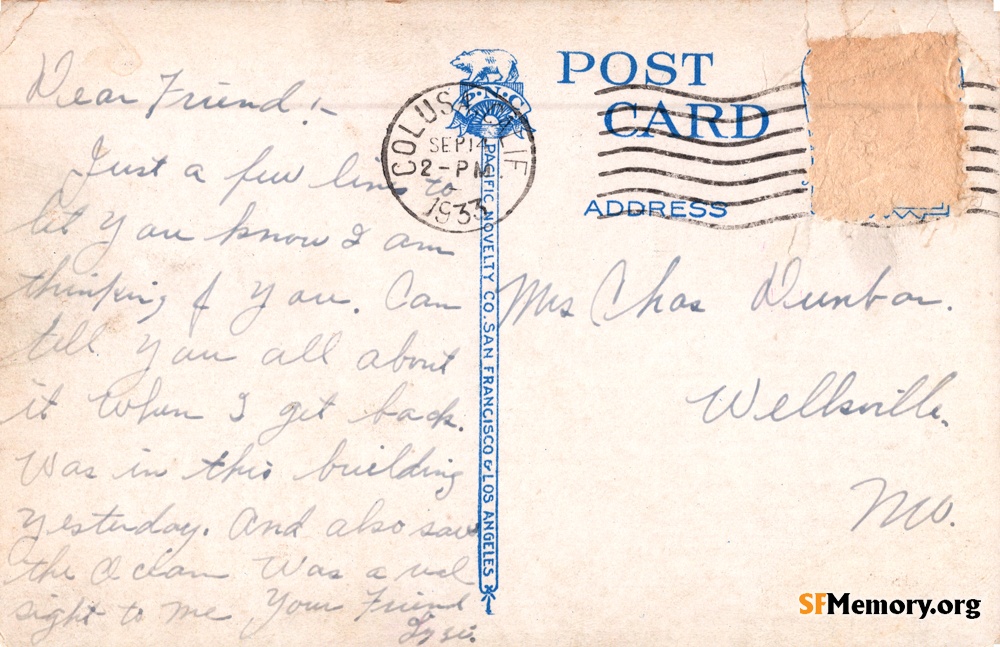 Dear Friend:-
Just a few lines to
let you know I am
thinking of you. Can
tell you all about
it when I get back.
Was in this building
yesterday. And also saw
the Ocean was a real
sight to me Your Friend
P.N.C.
COLUSA CALIF.
SEP 14
2-PM
1933
PACIFIC NOVELTY CO. SAN FRANCISCO & LOS ANGELES
POST
CARD
ADDRESS
Mrs Chas Dunbar.
Wellsville,
Mo.
SFMemory.org